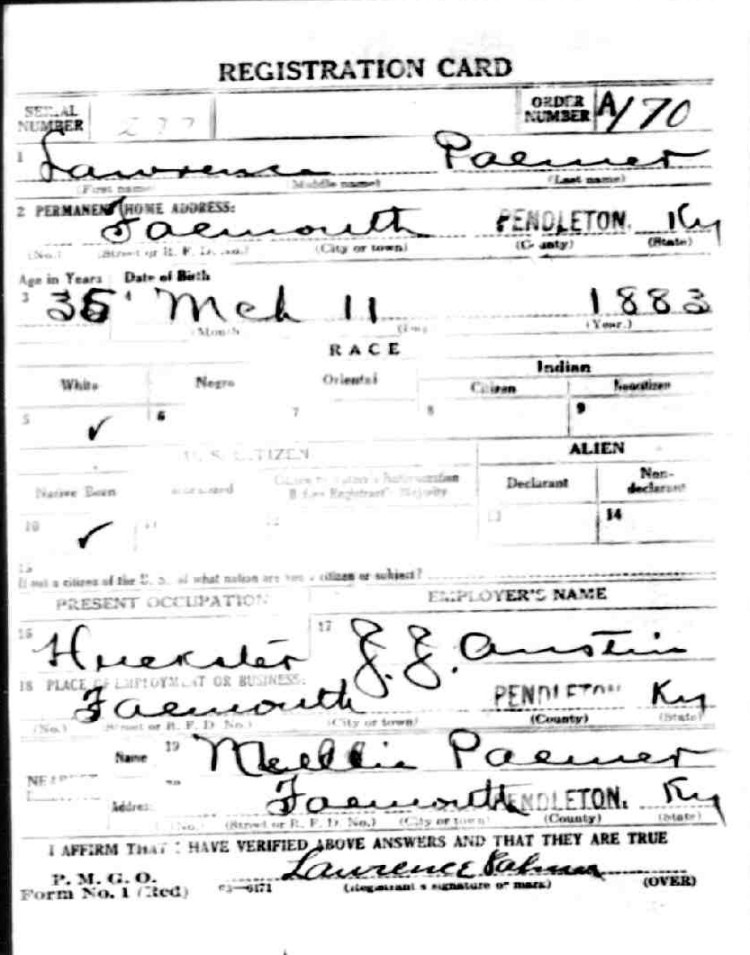 REGISTRATION CARD
SERIAL NUMBER 277 ORDER NUMBER A170
1 Lawrence Palmer
(First name) (Middle name) (Last name)
2 PERMANENT HOME ADDRESS:
Falmouth PENDLETON. Ky
(No.) (Street or R. F. D. No.) (City or town) (County) (State)
Age in Years Date of Birth
3 35 4 Mch 11 1883
(Month) (Day) (Year.)
RACE
White Negro Oriental Indian
Citizen Noncitizen
5 ✓ 6 7 8 9
U. S. CITIZEN ALIEN
Native Born Naturalized Citizen by Father's Naturalization Before Registrant's Majority Declarant Non-declarant
10 ✓ 11 12 13 14
15
If not a citizen of the U. S., of what nation are you a citizen or subject?
PRESENT OCCUPATION EMPLOYER'S NAME
16 Huckster 17 J. J. Austin
18 PLACE OF EMPLOYMENT OR BUSINESS:
Falmouth PENDLETON Ky
(No.) (Street or R. F. D. No.) (City or town) (County) (State)
Name 19 Palmer
NEAREST
Address 20 Falmouth PENDLETON. Ky
(No.) (Street or R. F. D. No.) (City or town) (County) (State)
I AFFIRM THAT I HAVE VERIFIED ABOVE ANSWERS AND THAT THEY ARE TRUE
P. M. G. O.
Form No. 1 (Red) 03—6171 Lawrence Palmer
(Registrant's signature or mark) (OVER)